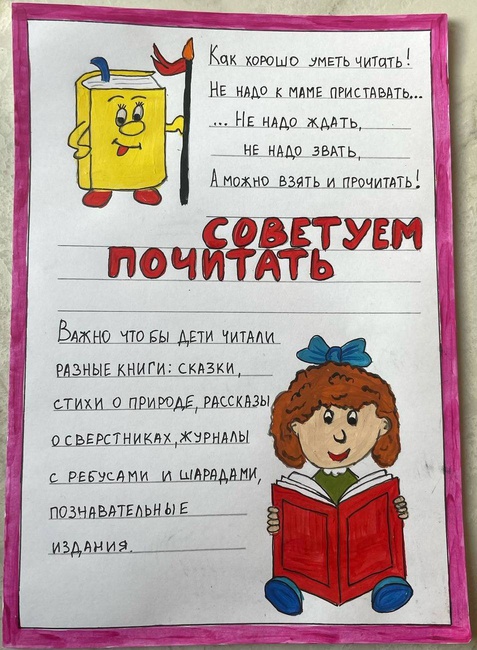 Как хорошо уметь читать!
Не надо к маме приставать...
... Не надо ждать,
не надо звать,
А можно взять и прочитать!
СОВЕТУЕМ
ПОЧИТАТЬ
Важно что бы дети читали
разные книги: сказки,
стихи о природе, рассказы
о сверстниках, журналы
с ребусами и шарадами,
познавательные
издания.